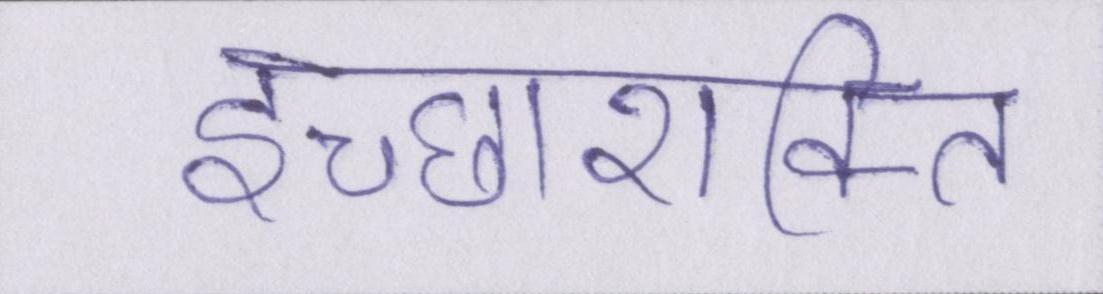 इच्छाशक्ति